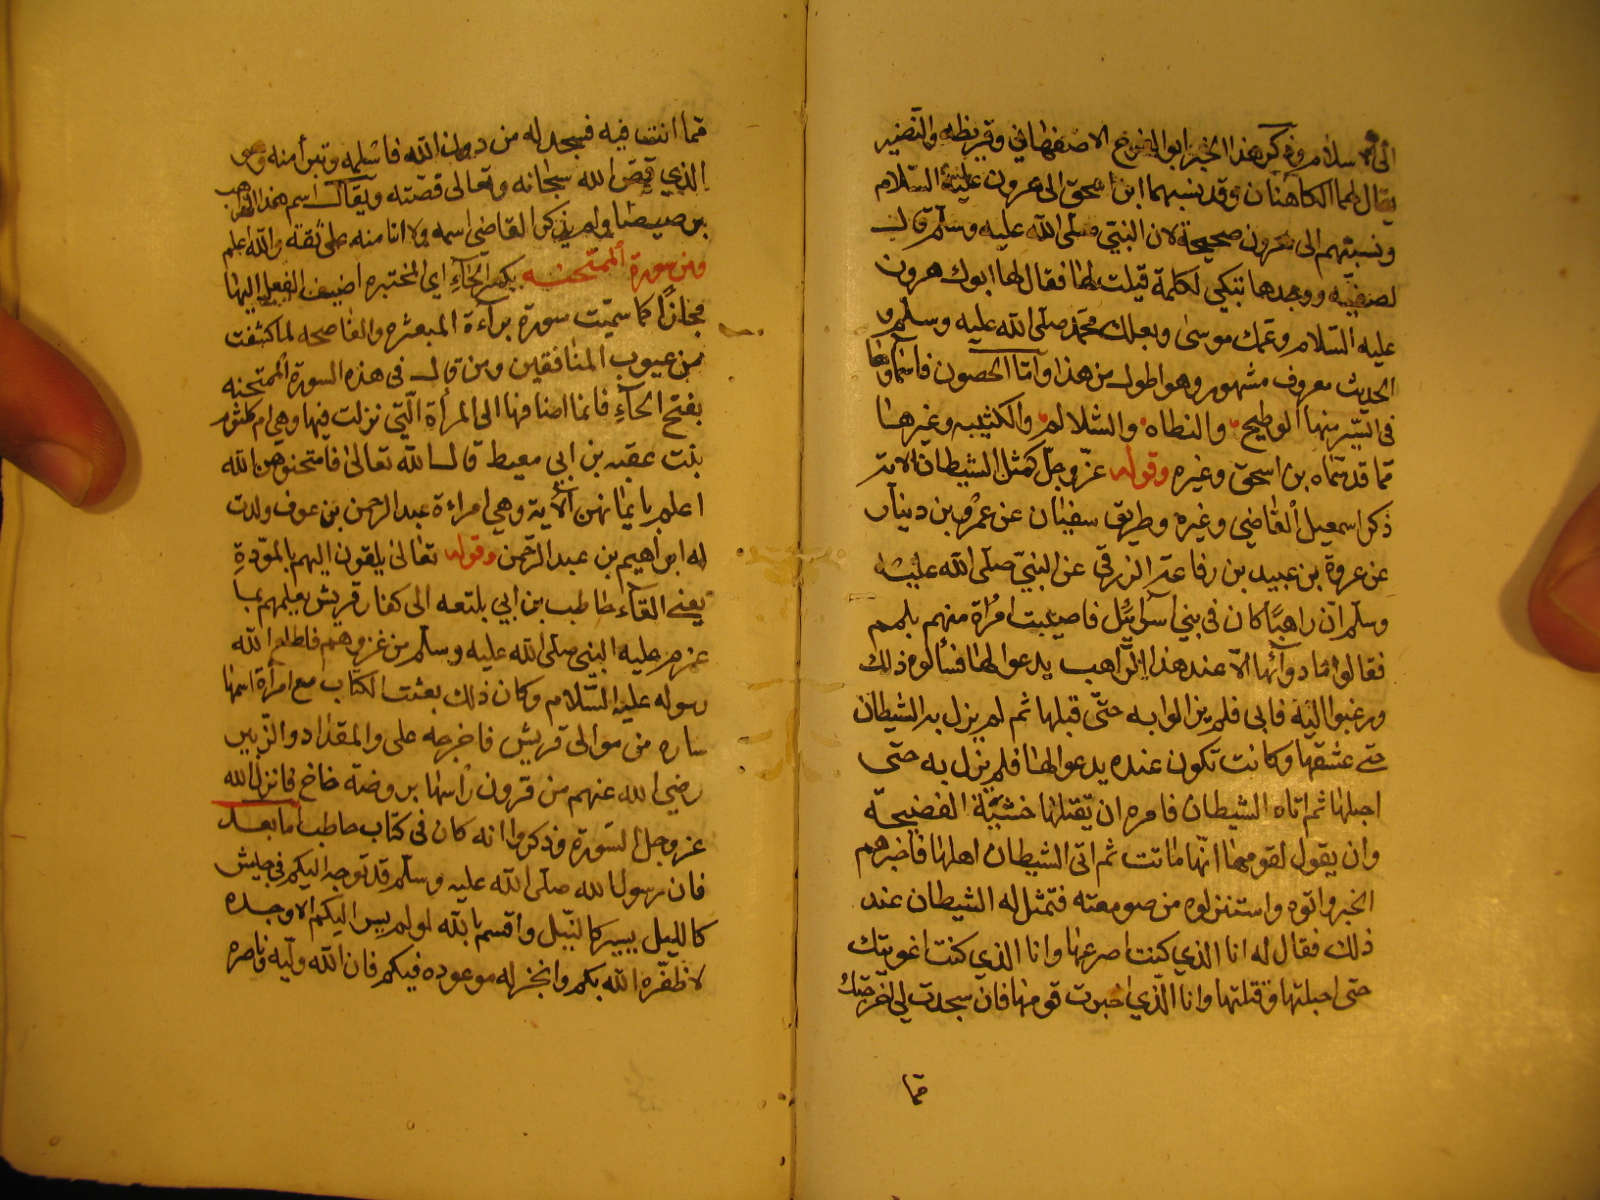 الى الاسلام وذكر هذا الخبر ابو الفرج الاصفهاني وقريظه والنضير
يقال لهما الكاهنان وقد ينسبهما ابن اسحق الى هرون عليه السلام
ونسبتهم الى هرون صحيحة لان النبي صلى الله عليه وسلم قال
لصفيه ووجدها تبكي لكلمة قيلت لها فقال لها ابوك هرون
عليه السلام وعمك موسى وبعلك محمد صلى الله عليه وسلم و
الحديث معروف مشهور وهو اطول من هذا واما الحصون فاسماؤها
في السير منها الوطيح والنطاه والسلالم والكثيبه وغيرها
مما قد سماه بن اسحق وغيره وقوله عز وجل كمثل الشيطان الايه
ذكر اسمعيل القاضي وغيره وطريق سفيان عن عمرو بن دينار
عن عروة بن عبيد بن رفاعة الزرقي عن النبي صلى الله عليه
وسلم ان راهبا كان في بني اسرائيل فاصيبت امراة منهم بلمم
فقالوا ما دوآئها الا عند هذا الراهب يدعوا لها فسألوه ذلك
ورغبوا اليه فابى فلم يزالوا به حتى قبلها ثم لم يزل به الشيطان
حتى عشقها وكانت تكون عنده يدعوا لها فلم يزل به حتى
احبلها ثم اتاه الشيطان فامره ان يقتلها خشية الفضيحة
وان يقول لقومها انها ماتت ثم اتى الشيطان اهلها فاخبرهم
الخبر واتوه واستنزلوه من صومعته فتمثل له الشيطان عند
ذلك فقال له انا الذي كنت اصرعها وانا الذي كنت اغويتك
حتى احبلتها وقتلتها وانا الذي اخبرت قومها فان سجدت لي اخرجتك
مما
مما انت فيه فسجد له من دون الله فاسلمه وتبرأ منه وهي
الذي قص الله سبحانه وتعالى قصته ويقال اسم هذا الراهب
برصيصا ولم يذكر القاضي اسمه ولا انا منه على ثقة والله اعلم
ومن سورة الممتحنه بكسر الحآءِ اي المختبره اضيف الفعل اليها
مجازًا كما سميت سورة برآءة المبعثره والفاضحه لما كشفت
من عيوب المنافقين ومن قال في هذه السورة الممتحنه
بفتح الحآءِ فانما اضافها الى المرأة التي نزلت فيها وهي ام كلثوم
بنت عقبه بن ابي معيط قال الله تعالى فامتحنوهن الله
اعلم بايمانهن الآية وهي امراءة عبد الرحمن بن عوف ولدت
له ابراهيم بن عبد الرحمن وقوله تعالى يلقون اليهم بالمودة
يعني القآء حاطب بن ابي بلتعه الى كفار قريش يعلمهم بما
عزم عليه النبي صلى الله عليه وسلم من غزوهم فاطلع الله
رسوله عليه السلام وكان ذلك بعثت الكتاب مع امرأة اسمها
ساره من موالى قريش فاخرجه على والمقداد والزبير
رضي الله عنهم من قرون رأسها بروضة خاخ فانزل الله
عز وجل السورة وذكروا انه كان في كتاب حاطب اما بعد
فان رسول الله صلى الله عليه وسلم قد توجه اليكم في جيش
كالليل يسير كالسيل واقسم بالله لو لم يسر اليكم الا وحده
لاظفره الله بكم وانجز له موعوده فيكم فان الله وليه وناصره